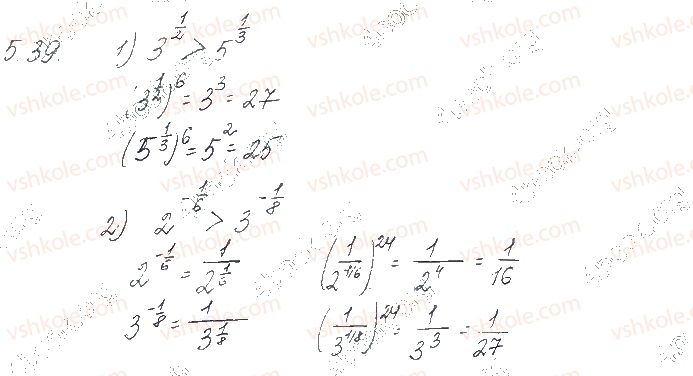 5.39. 1) 3^{1/2} > 5^{1/3}
(3^{1/2})^6 = 3^3 = 27
(5^{1/3})^6 = 5^2 = 25
2) 2^{-1/6} > 3^{-1/8}
2^{-1/6} = 1/2^{1/6} (1/2^{1/6})^{24} = 1/2^4 = 1/16
3^{-1/8} = 1/3^{1/8} (1/3^{1/8})^{24} = 1/3^3 = 1/27
vshkole.com